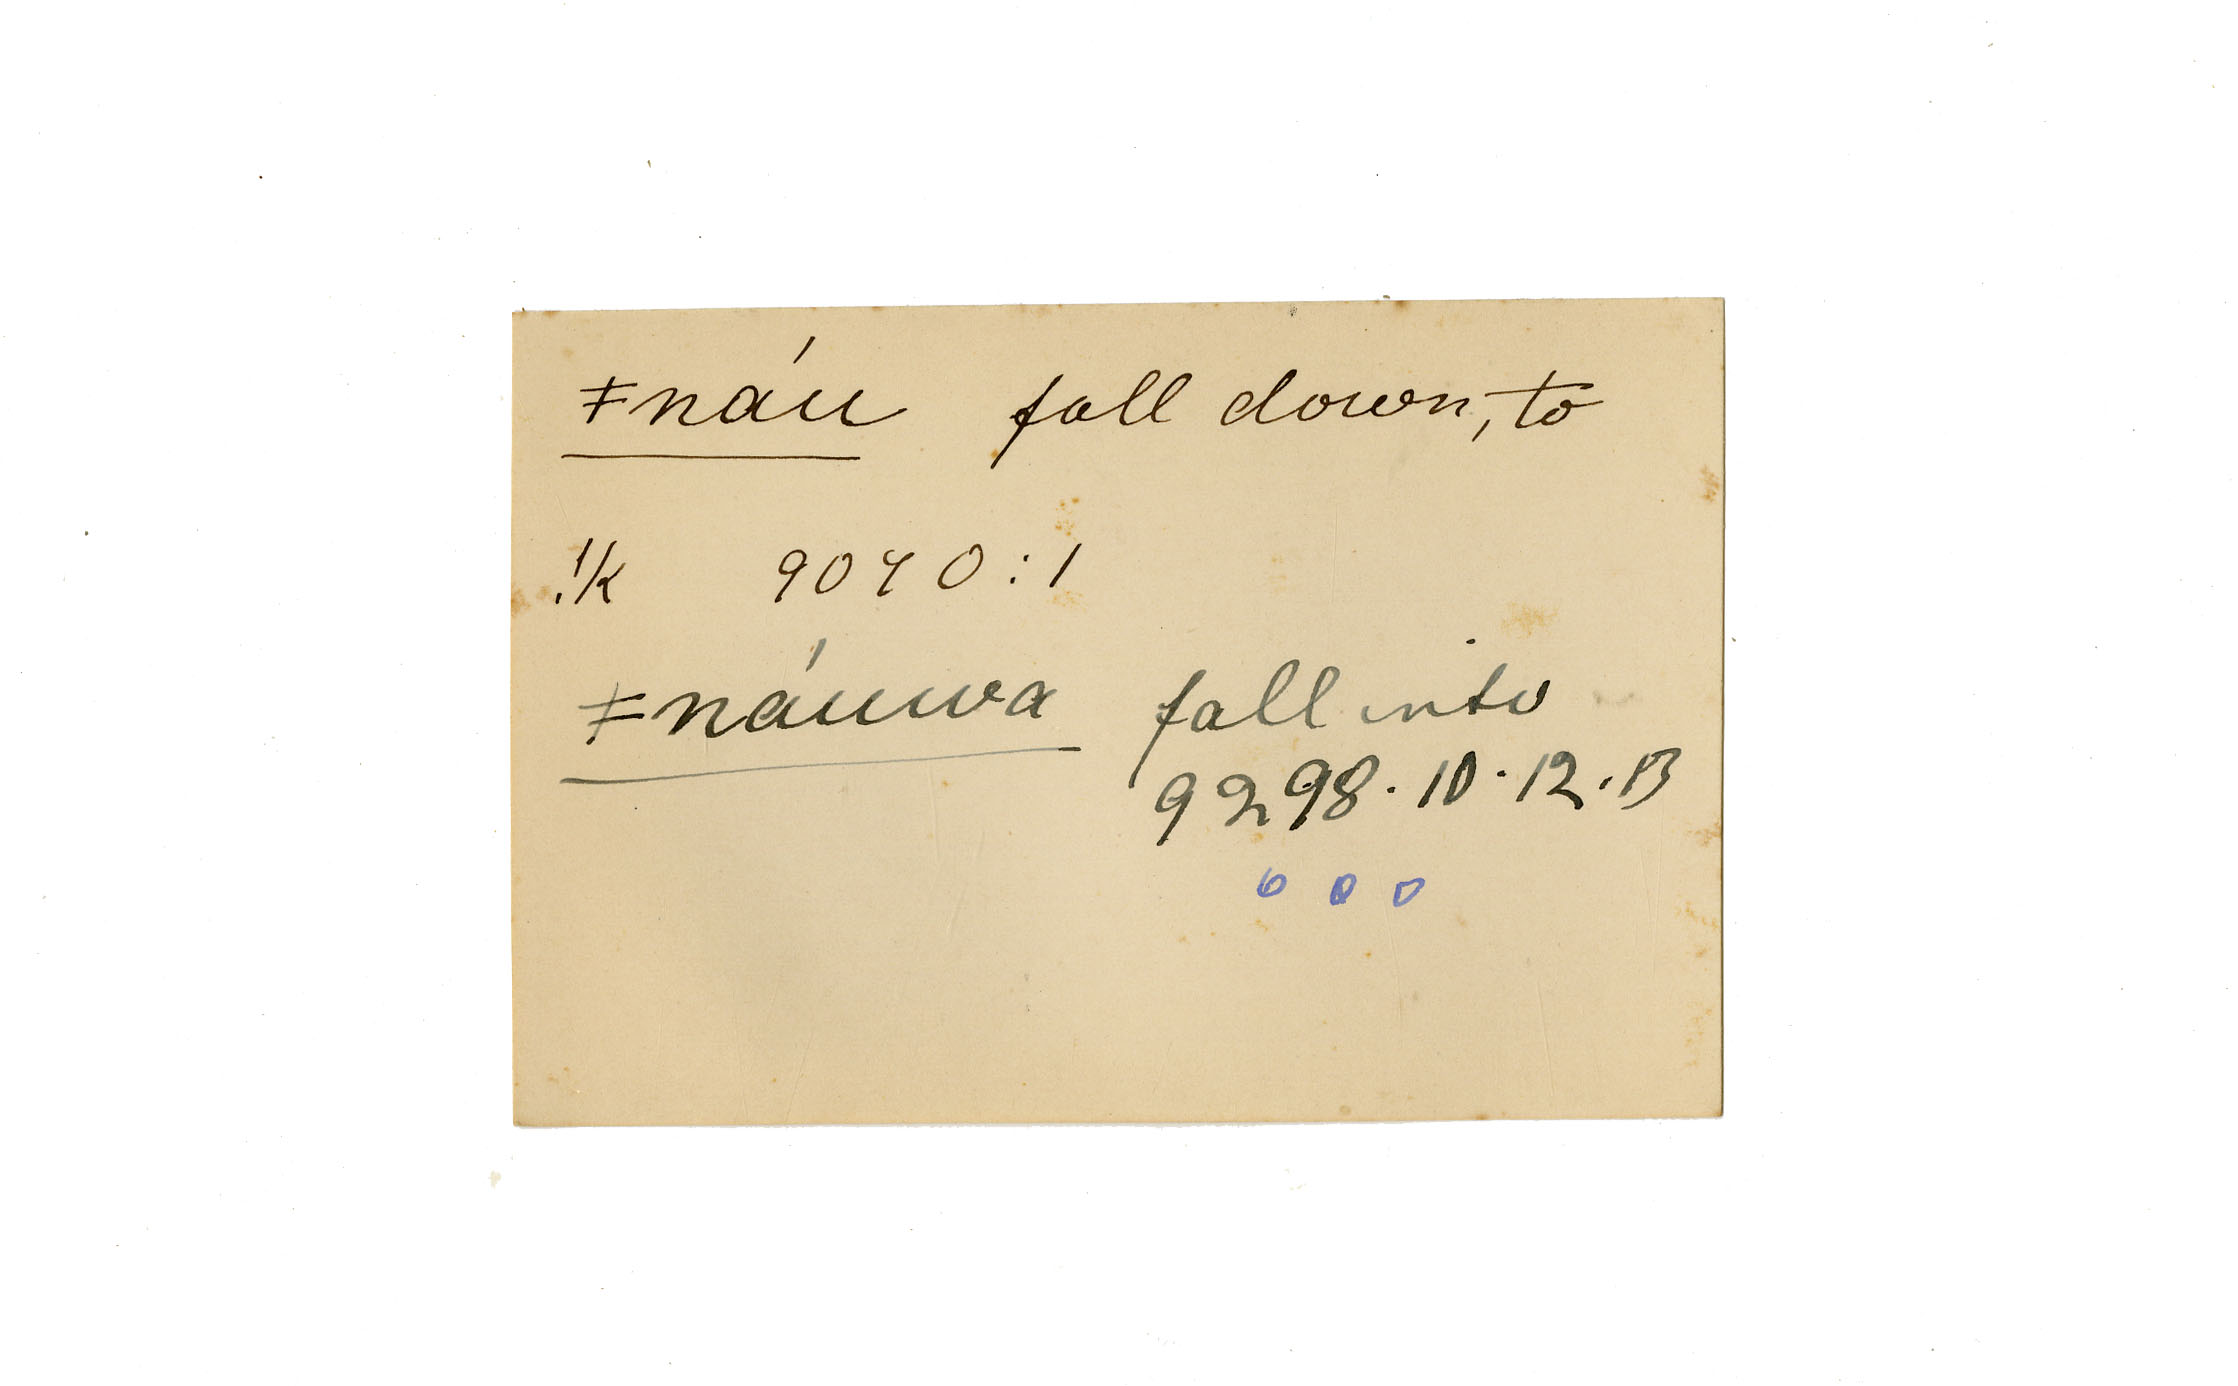 ǂnáu fall down, to
!k 9040:1
ǂnáuwa fall into
9298.10.12.13